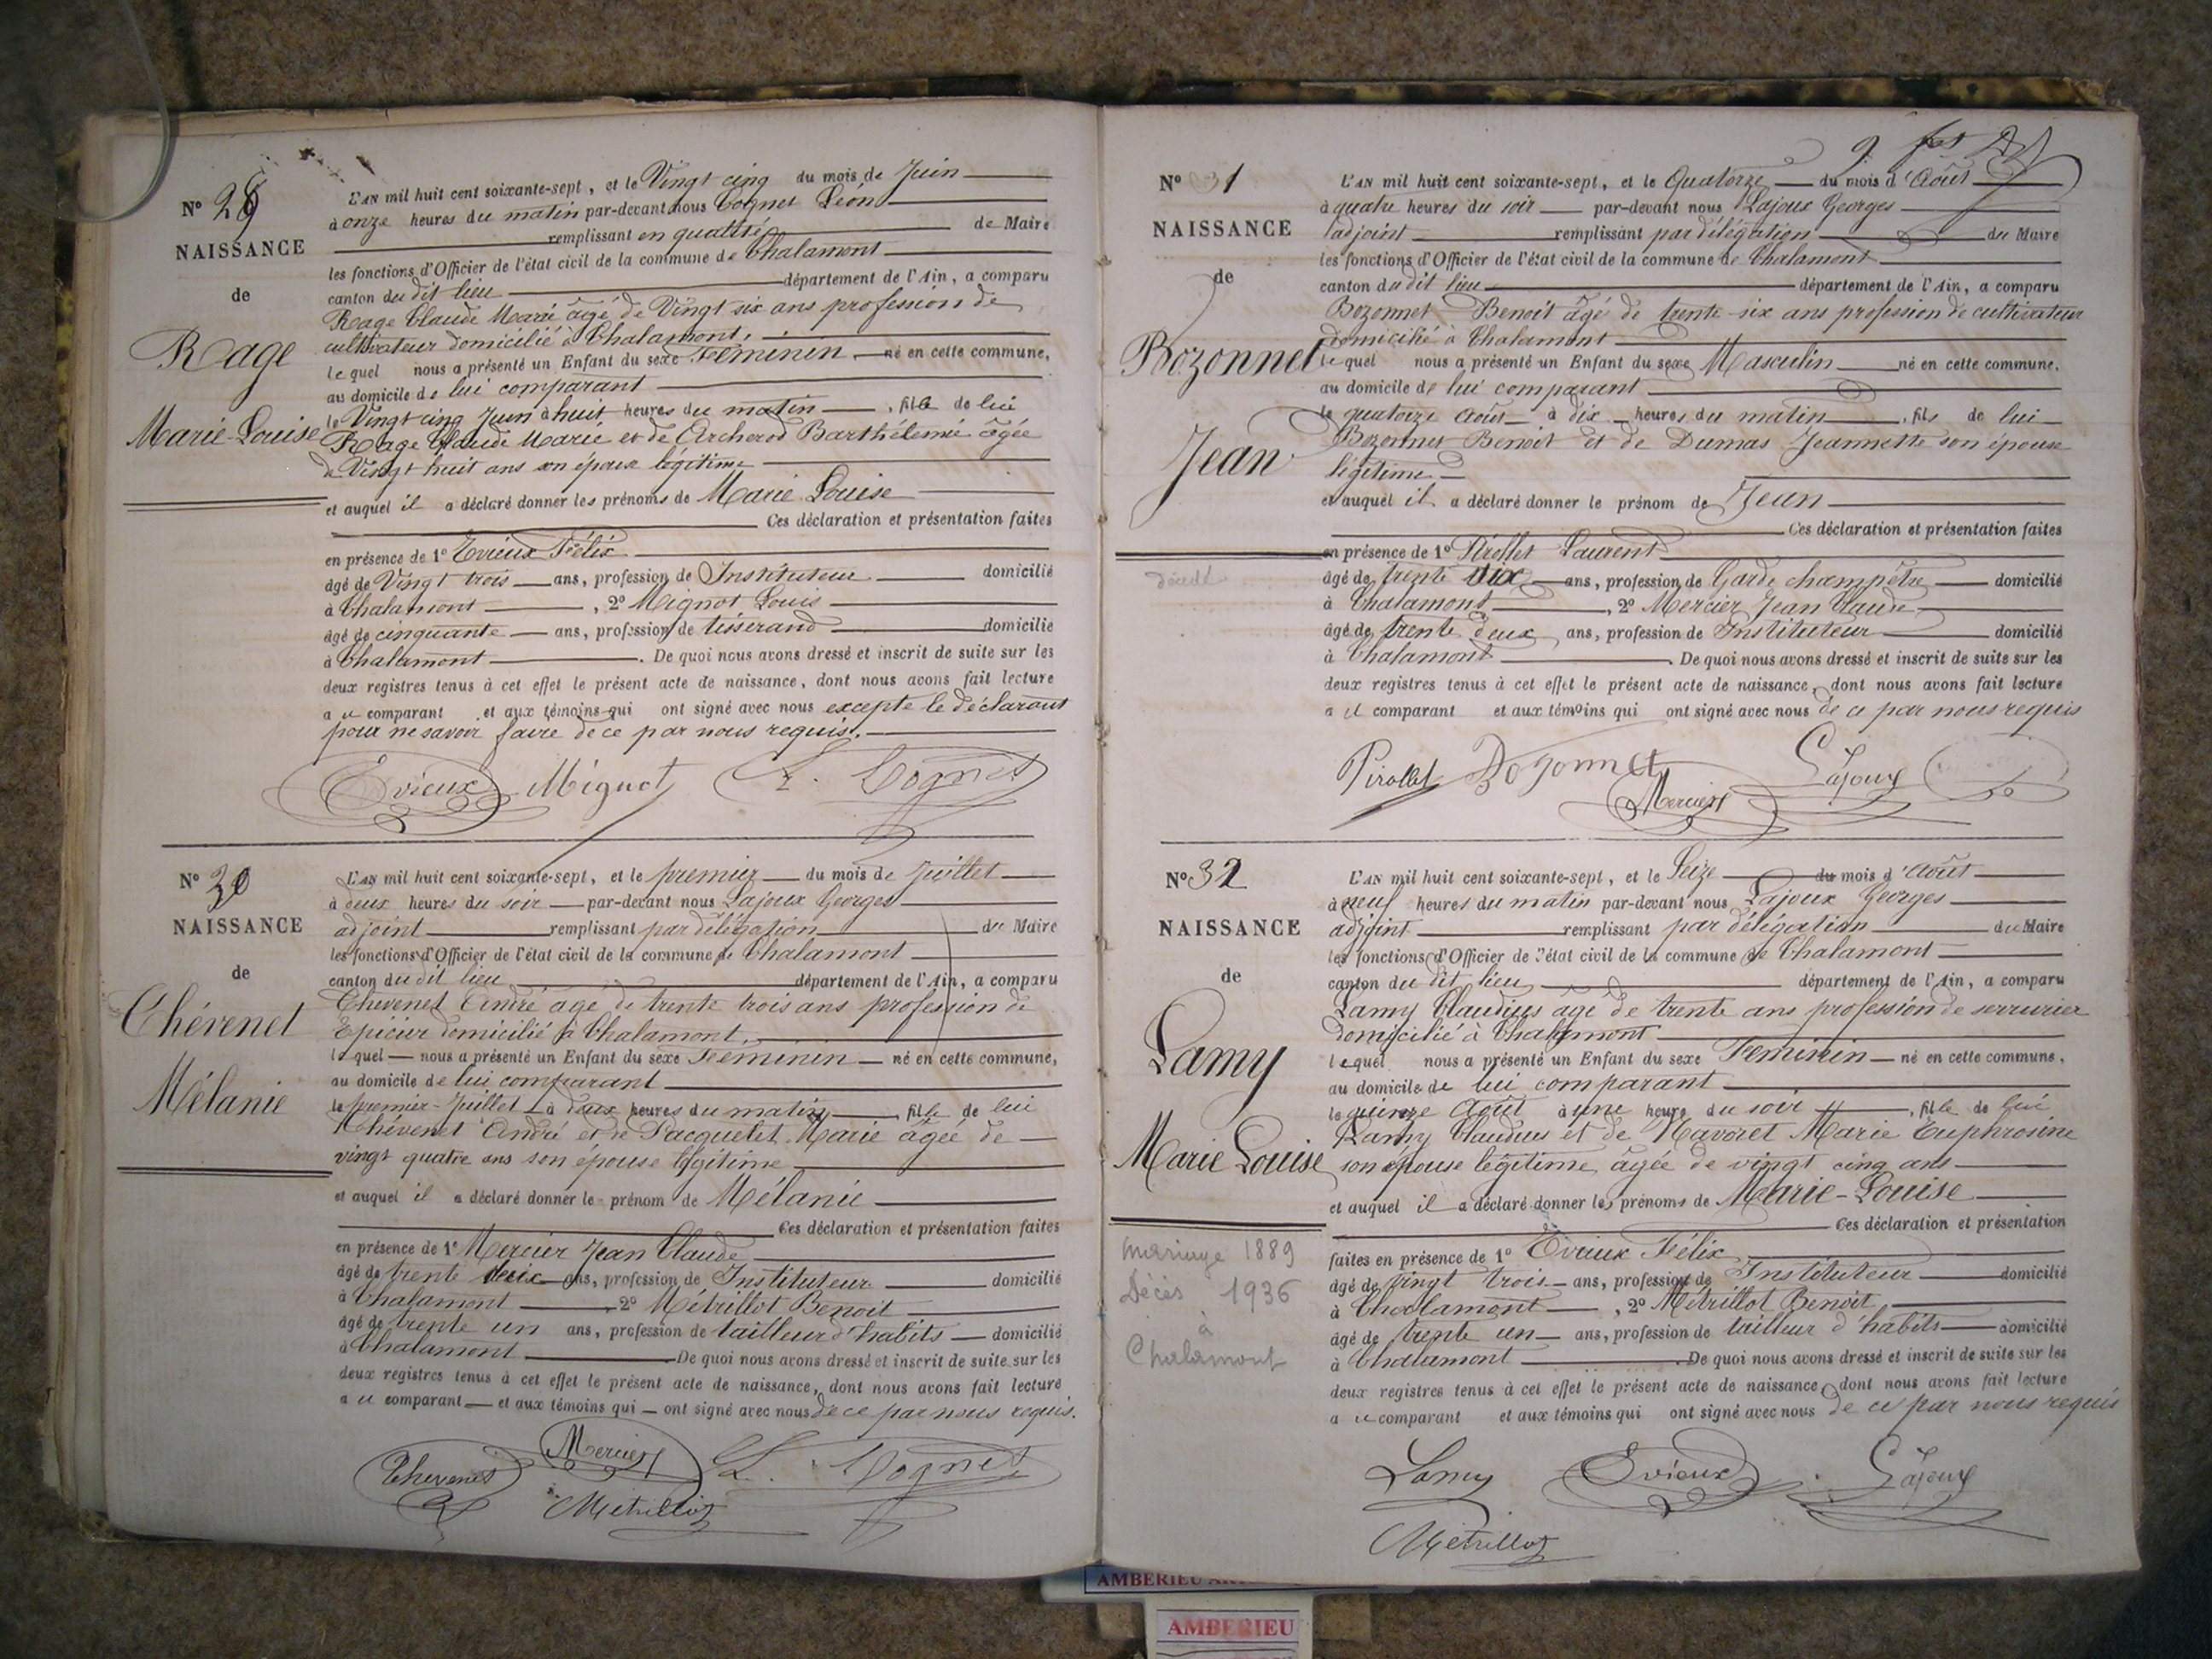 N° 29
NAISSANCE
de
Rage
Marie-Louise
L'AN mil huit cent soixante-sept, et le Vingt cinq du mois de Juin
à onze heures du matin par-devant nous Cognet Léon
remplissant en qualité de Maire
les fonctions d'Officier de l'état civil de la commune de Chalamont
canton du dit lieu département de l'Ain, a comparu
Rage Claude Marie âgé de Vingt six ans profession de
cultivateur domicilié à Chalamont.
lequel nous a présenté un Enfant du sexe Féminin né en cette commune,
au domicile de lui comparant
le Vingt cinq Juin à huit heures du matin, fille de lui
Rage Claude Marie et de Archerod Barthélemie âgée
de Vingt huit ans son épouse légitime
et auquel il a déclaré donner les prénoms de Marie Louise
Ces déclaration et présentation faites
en présence de 1° Evieux Félix
âgé de Vingt trois ans, profession de Instituteur domicilié
à Chalamont, 2° Mignot Louis
âgé de cinquante ans, profession de tisserand domicilié
à Chalamont. De quoi nous avons dressé et inscrit de suite sur les
deux registres tenus à cet effet le présent acte de naissance, dont nous avons fait lecture
au comparant et aux témoins qui ont signé avec nous excepté le déclarant
pour ne savoir faire de ce par nous requis.
Evieux Mignot L. Cognet
N° 30
NAISSANCE
de
Chévenet
Mélanie
L'AN mil huit cent soixante-sept, et le premier du mois de Juillet
à deux heures du soir par-devant nous Lajoux Georges
adjoint remplissant par délégation du Maire
les fonctions d'Officier de l'état civil de la commune de Chalamont
canton du dit lieu département de l'Ain, a comparu
Chevenet André âgé de trente trois ans profession de
Epicier domicilié à Chalamont.
lequel nous a présenté un Enfant du sexe Féminin né en cette commune,
au domicile de lui comparant
le premier Juillet à deux heures du matin, fille de lui
Chévenet André et de Pacquelet Marie âgée de
vingt quatre ans son épouse légitime
et auquel il a déclaré donner le prénom de Mélanie
Ces déclaration et présentation faites
en présence de 1° Mercier Jean Claude
âgé de trente deux ans, profession de Instituteur domicilié
à Chalamont 2° Métrillot Benoit
âgé de trente un ans, profession de tailleur d'habits domicilié
à Chalamont De quoi nous avons dressé et inscrit de suite sur les
deux registres tenus à cet effet le présent acte de naissance, dont nous avons fait lecture
au comparant et aux témoins qui ont signé avec nous de ce par nous requis.
Chevenet Mercier L. Cognet
Métrillot
N° 31
NAISSANCE
de
Bozonnet
Jean
décédé
L'AN mil huit cent soixante-sept, et le Quatorze du mois d'Août
à quatre heures du soir par-devant nous Lajoux Georges
adjoint remplissant par délégation du Maire
les fonctions d'Officier de l'état civil de la commune de Chalamont
canton du dit lieu département de l'Ain, a comparu
Bozonnet Benoit âgé de trente-six ans profession de cultivateur
domicilié à Chalamont
lequel nous a présenté un Enfant du sexe Masculin né en cette commune,
au domicile de lui comparant
le quatorze Août à dix heures du matin, fils de lui
Bozonnet Benoit et de Dumas Jeannette son épouse
légitime
et auquel il a déclaré donner le prénom de Jean
Ces déclaration et présentation faites
en présence de 1° Pirollet Laurent
âgé de trente ans, profession de Garde champêtre domicilié
à Chalamont, 2° Mercier Jean Claude
âgé de trente deux ans, profession de Instituteur domicilié
à Chalamont. De quoi nous avons dressé et inscrit de suite sur les
deux registres tenus à cet effet le présent acte de naissance, dont nous avons fait lecture
au comparant et aux témoins qui ont signé avec nous de ce par nous requis
Pirollet Bozonnet Lajoux
Mercier
N° 32
NAISSANCE
de
Lamy
Marie Louise
mariage 1889
Décès 1936
à
Chalamont
L'AN mil huit cent soixante-sept, et le Seize du mois d'Août
à neuf heures du matin par-devant nous Lajoux Georges
adjoint remplissant par délégation du Maire
les fonctions d'Officier de l'état civil de la commune de Chalamont
canton du dit lieu département de l'Ain, a comparu
Lamy Claudius âgé de trente ans profession de serrurier
domicilié à Chalamont
lequel nous a présenté un Enfant du sexe Féminin né en cette commune,
au domicile de lui comparant
le quinze Août à une heure du soir, fille de lui
Lamy Claudius et de Navoret Marie Euphrosine
son épouse légitime âgée de vingt cinq ans
et auquel il a déclaré donner les prénoms de Marie-Louise
Ces déclaration et présentation
faites en présence de 1° Evieux Félix
âgé de vingt trois ans, profession de Instituteur domicilié
à Chalamont, 2° Métrillot Benoit
âgé de trente un ans, profession de tailleur d'habits domicilié
à Chalamont. De quoi nous avons dressé et inscrit de suite sur les
deux registres tenus à cet effet le présent acte de naissance, dont nous avons fait lecture
au comparant et aux témoins qui ont signé avec nous de ce par nous requis
Lamy Evieux Lajoux
Métrillot
AMBERIEU
AMBERIEU